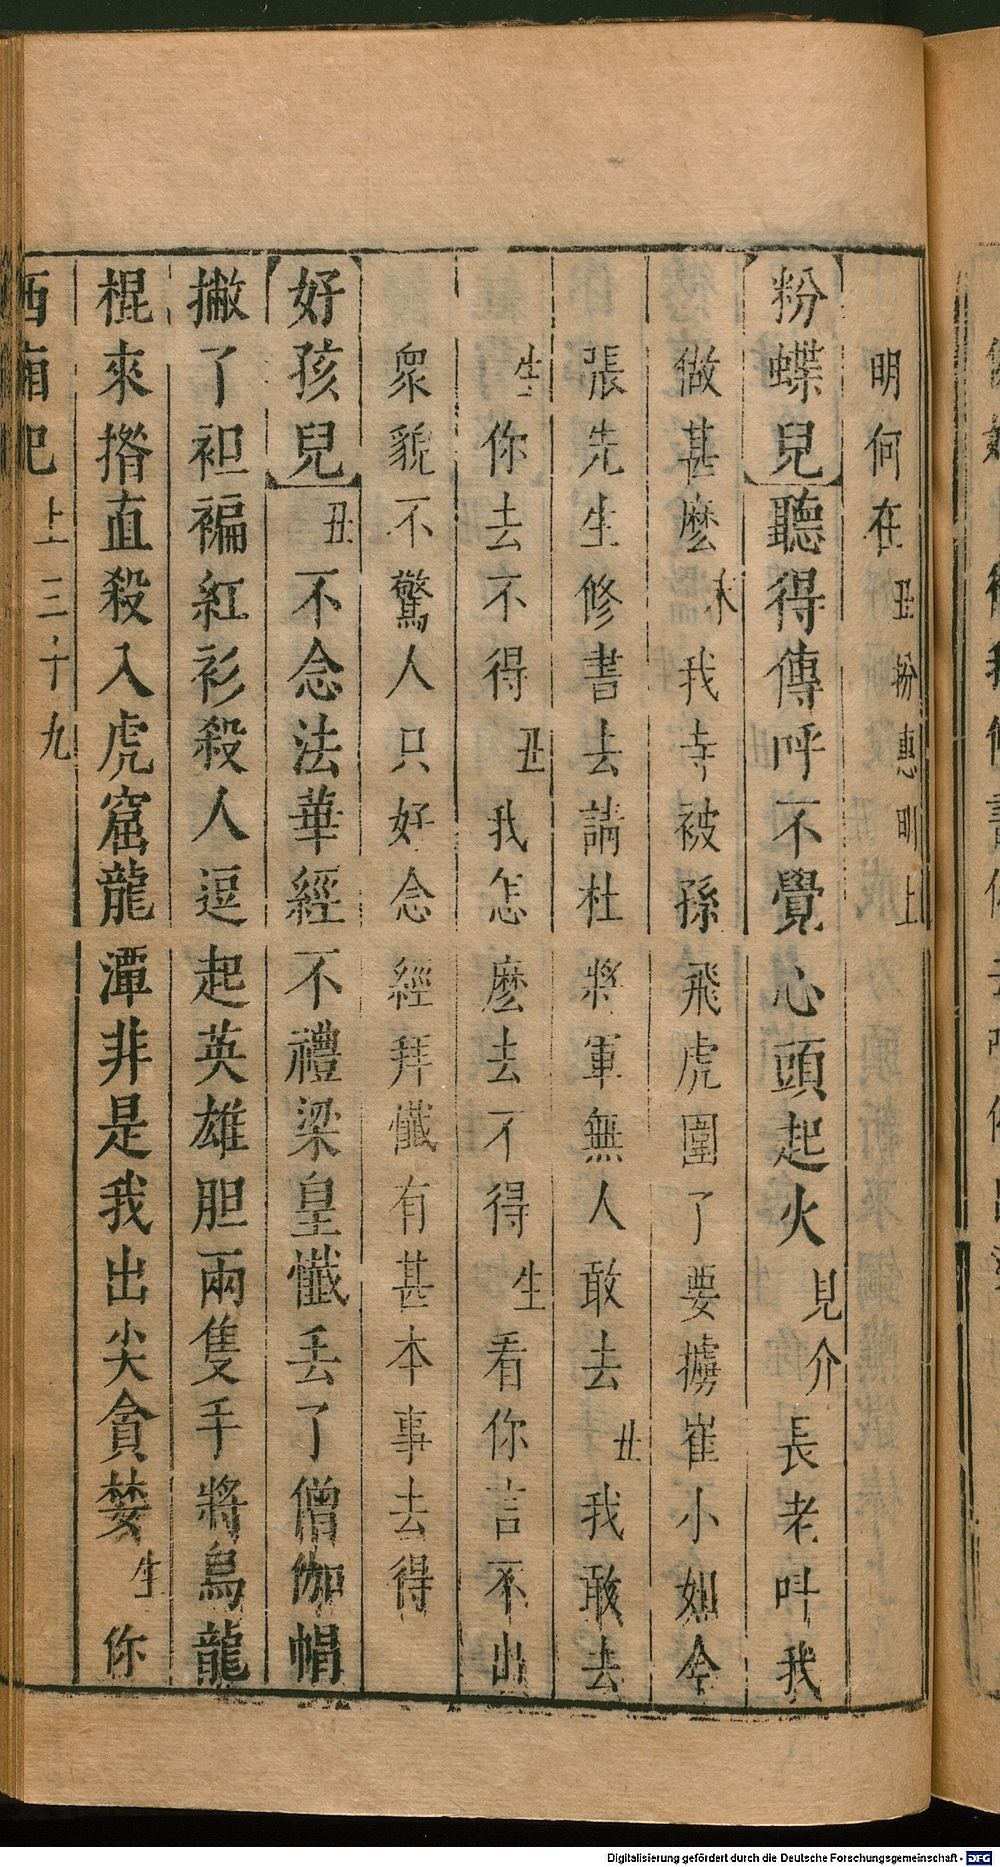 明何在丑扮惠明上
粉蝶兒聽得傳呼不覺心頭起火見介長老叫我
做甚麽末我寺被孫飛虎圍了要擄崔小如今
張先生修書去請杜將軍無人敢去丑我敢去
生你去不得丑我怎麽去不得生看你言不出
衆貌不驚人只好念經拜懺有甚本事去得
好孩兒丑不念法華經不禮梁皇懺丢了僧伽帽
撇了袒褊紅衫殺人逗起英雄胆兩隻手將烏龍
棍來揝直殺入虎窟龍潭非是我出尖貪婪生你
西廂記上三十九
Digitalisierung gefördert durch die Deutsche Forschungsgemeinschaft - DFG